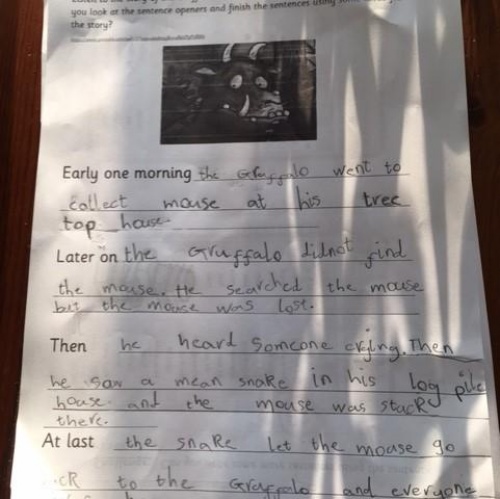 you look at the sentence openers and finish the sentences using
the story?
Early one morning the Gruffalo went to
collect mouse at his tree
top house.
Later on the Gruffalo didnot find
the mouse. He searched the mouse
but the mouse was lost.
Then he heard someone crying. Then
he saw a mean snake in his log pile
house and the mouse was stack
there.
At last the snake let the mouse go
to the Gruffalo and everyone